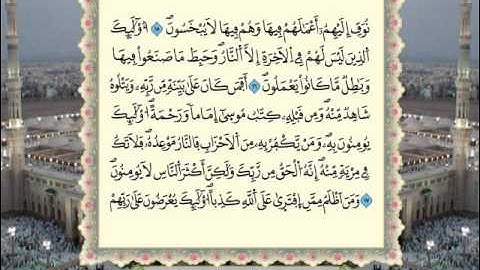 نُوَفِّ إِلَيْهِمُۥٓ أَعْمَٰلَهُمْ فِيهَا وَهُمْ فِيهَا لَا يُبْخَسُونَۖ ١٥ أُوْلَٰٓئِكَ
اَ۬لذِينَ لَيْسَ لَهُمْ فِے اِ۬لَاخِرَةِ إِلَّا اَ۬لنَّارُۖ وَحَبِطَ مَا صَنَعُواْ فِيهَا
وَبَٰطِلٞ مَّا كَانُواْ يَعْمَلُونَۖ ١٦ أَفَمَن كَانَ عَلَىٰ بَيِّنَةٖ مِّن رَّبِّهِۦ وَيَتْلُوهُ
شَاهِدٞ مِّنْهُۖ وَمِن قَبْلِهِۦ كِتَٰبُ مُوس۪ىٰٓ إِمَاماٗ وَرَحْمَةًۖ ا۟وْلَٰٓئِكَ
يُومِنُونَ بِهِۦۖ وَمَنْ يَّكْفُرْ بِهِۦ مِنَ اَ۬لَاحْزَابِ فَالنَّارُ مَوْعِدُهُۥۖ فَلَا تَكُ
فِے مِرْيَةٖ مِّنْهُۖ إِنَّهُ اُ۬لْحَقُّ مِن رَّبِّكَۖ وَلَٰكِنَّ أَكْثَرَ اَ۬لنَّاسِ لَا يُومِنُونَۖ
١٧ وَمَنَ اَظْلَمُ مِمَّنِ اِ۪فْتَر۪ىٰ عَلَى اَ۬للَّهِ كَذِباًۖ ا۟وْلَٰٓئِكَ يُعْرَضُونَ عَلَىٰ رَبِّهِمْ